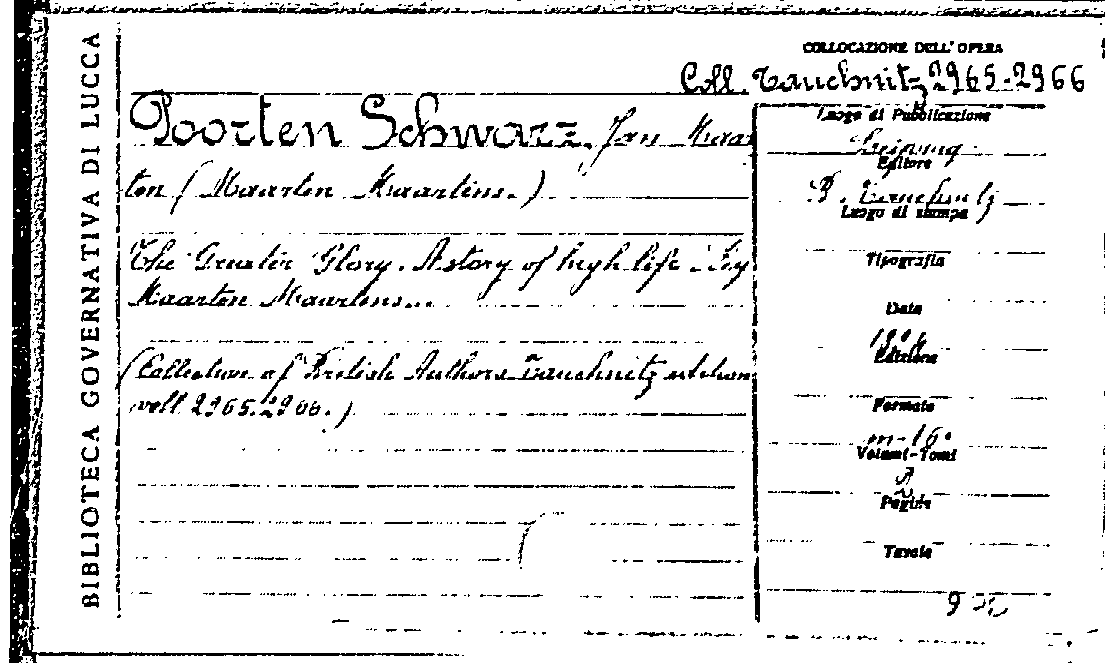 BIBLIOTECA GOVERNATIVA DI LUCCA
COLLOCAZIONE DELL'OPERA
Coll. Tauchnitz 2965-2966
Poorten Schwarz, Jan Maar
ten (Maarten Maartens.)
The Greater Glory. A story of high life. By
Maarten Maartens...
(Collection of British Authors Tauchnitz edition
voll. 2965.2966.)
Luogo di Pubblicazione
Leipzig
Editore
B. Tauchnitz
Luogo di stampa
Tipografia
Data
1894
Edizione
Formato
in-16°
Volumi-Tomi
2
Pagine
Tavole